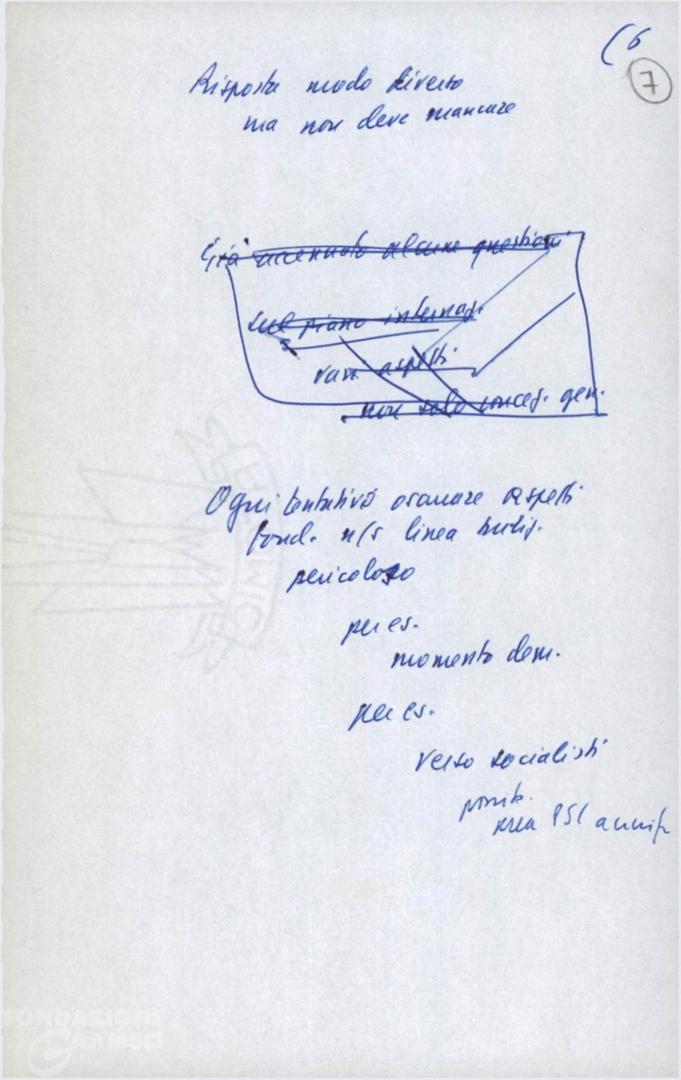 (6
7
Risposta modo diverso
ma non deve mancare
Già accennato alcune questioni
sul piano internaz.
vari aspetti
non solo conces. gen.
Ogni tentativo oscurare aspetti
fond. n/s linea
pericoloso
per es.
momento dem.
per es.
verso socialisti
area PSI
FONDAZIONE
GRAMSCI